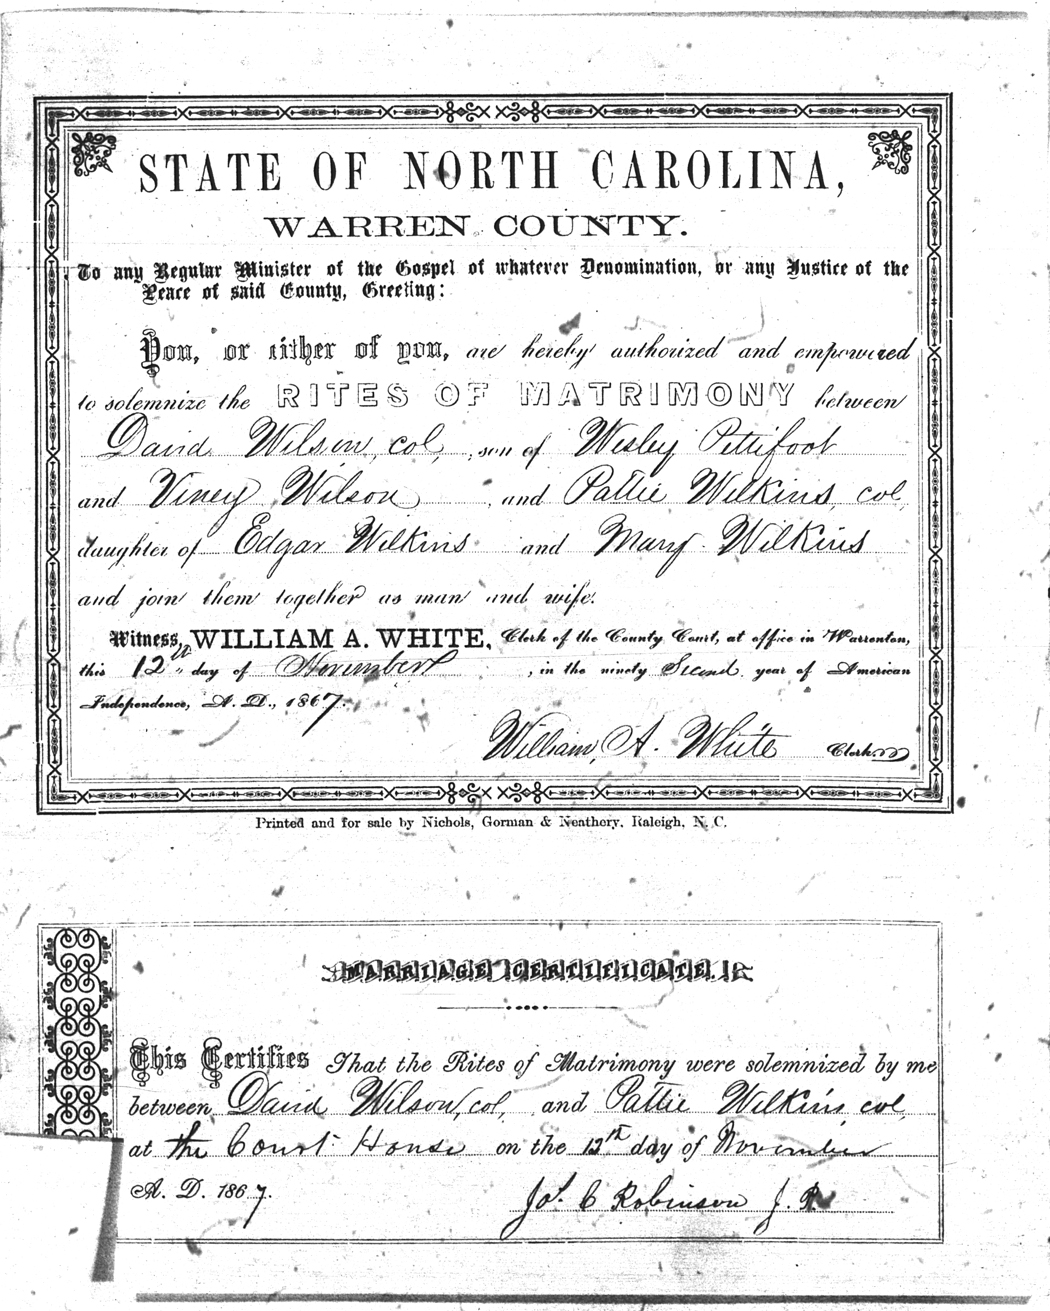 STATE OF NORTH CAROLINA,
WARREN COUNTY.
To any Regular Minister of the Gospel of whatever Denomination, or any Justice of the
Peace of said County, Greeting:
You, or either of you, are hereby authorized and empowered
to solemnize the RITES OF MATRIMONY between
David Wilson, col, son of Wesley Pettifoot
and Viney Wilson, and Pattie Wilkins, col,
daughter of Edgar Wilkins and Mary Wilkins
and join them together as man and wife.
Witness, WILLIAM A. WHITE, Clerk of the County Court, at office in Warrenton,
this 12th day of November, in the ninety Second year of American
Independence, A. D., 1867.
William A. White Clerk
Printed and for sale by Nichols, Gorman & Neathery, Raleigh, N. C.
MARRIAGE CERTIFICATE.
This Certifies That the Rites of Matrimony were solemnized by me
between David Wilson, col, and Pattie Wilkins col
at the Court House on the 12th day of November
A. D. 1867.
Jos. C Robinson J. P.